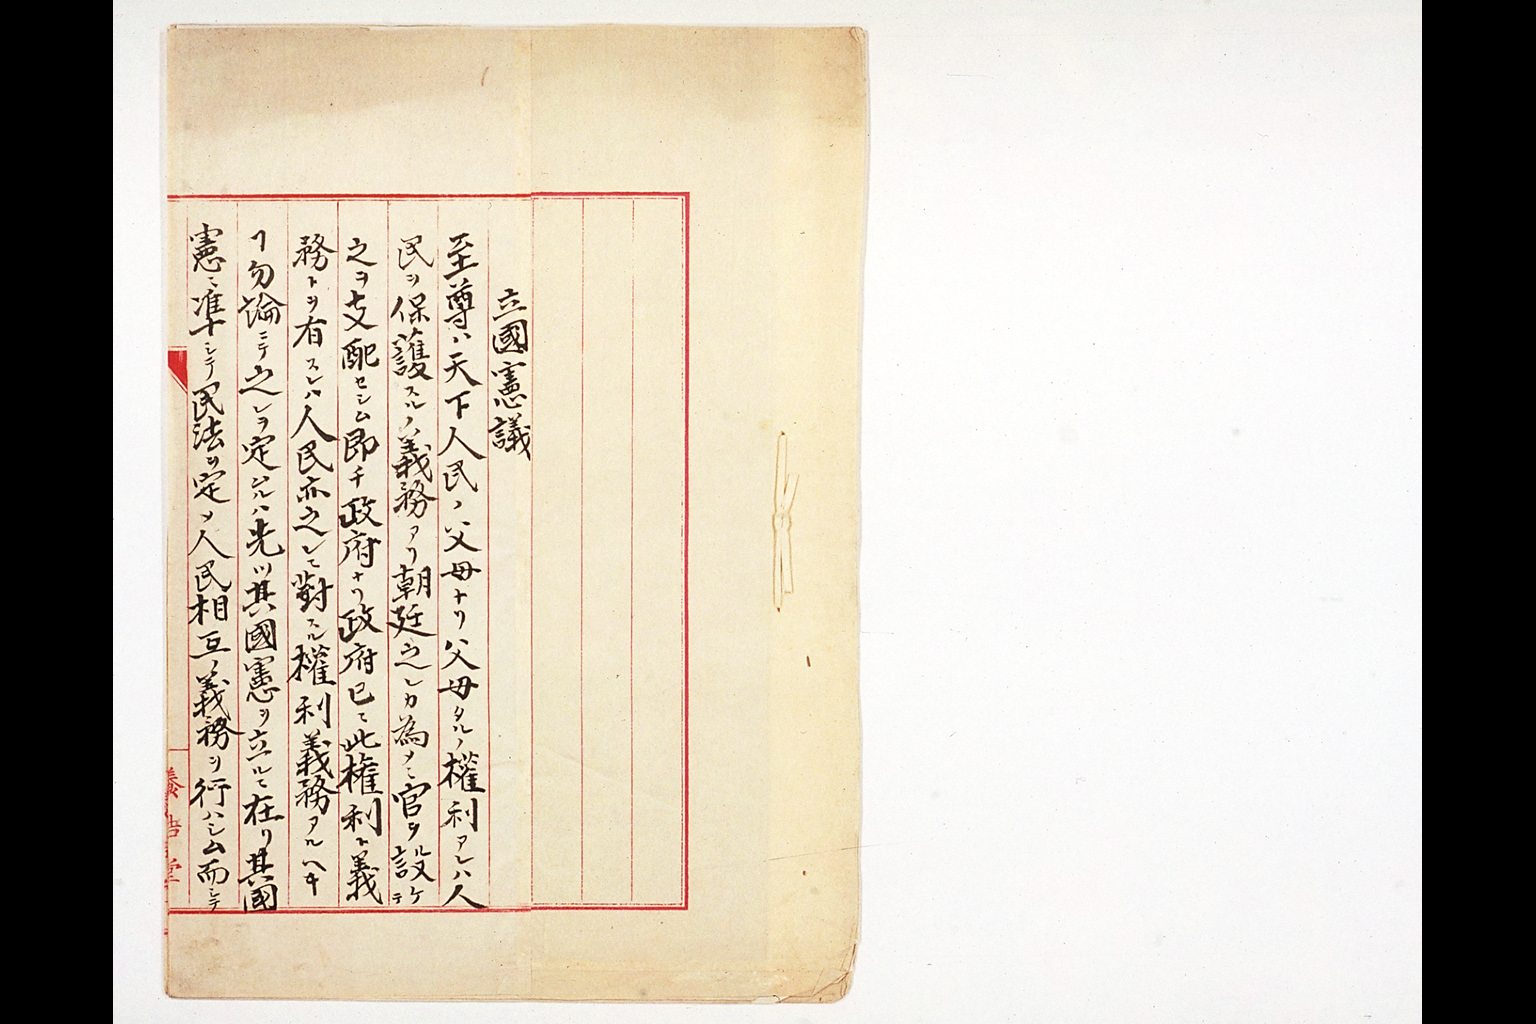 立國憲議
至尊ハ天下人民ノ父母ナリ父母タルノ權利アレハ人
民ヲ保護スルノ義務アリ朝廷之レカ為メニ官ヲ設ケテ
之ヲ支配セシム即チ政府ナリ政府已ニ此權利ト義
務トヲ有スレハ人民亦之レニ對スル權利義務アルヘキ
ヿ勿論ニテ之レヲ定ムルハ先ツ其國憲ヲ立ルニ在リ其國
憲ニ準十シテ民法ヲ定メ人民相互ノ義務ヲ行ハシム而シテ